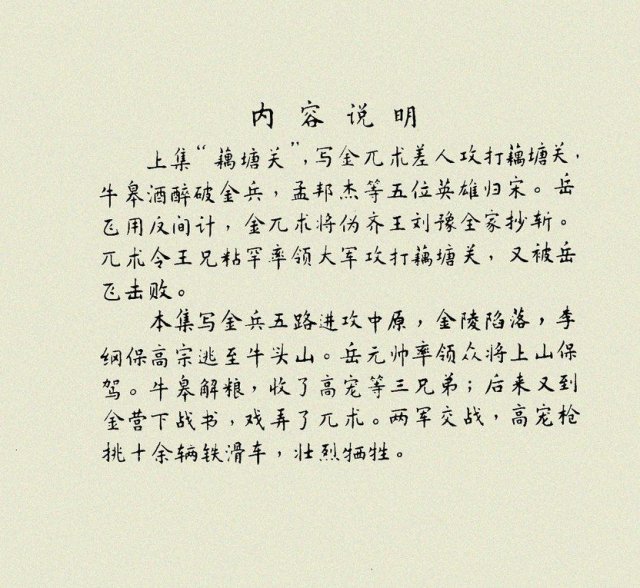 内容说明
上集“藕塘关”，写金兀术差人攻打藕塘关，
牛皋酒醉破金兵，孟邦杰等五位英雄归宋。岳
飞用反间计，金兀术将伪齐王刘豫全家抄斩。
兀术令王兄粘罕率领大军攻打藕塘关，又被岳
飞击败。
本集写金兵五路进攻中原，金陵陷落，李
纲保高宗逃至牛头山。岳元帅率领众将上山保
驾。牛皋解粮，收了高宠等三兄弟；后来又到
金营下战书，戏弄了兀术。两军交战，高宠枪
挑十余辆铁滑车，壮烈牺牲。